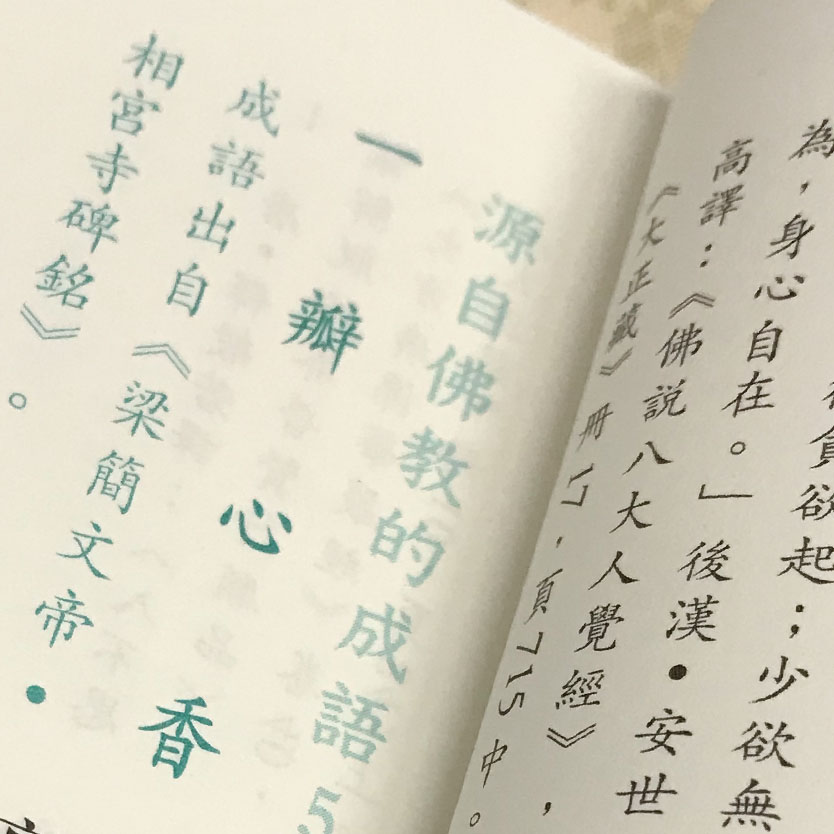 貪欲起；少欲無
為，身心自在。」後漢•安世
高譯：《佛説八大人覺經》，
《大正藏》冊17、頁715中。
源自佛教的成語5
一瓣心香
成語出自《梁簡文帝•
相宮寺碑銘》。